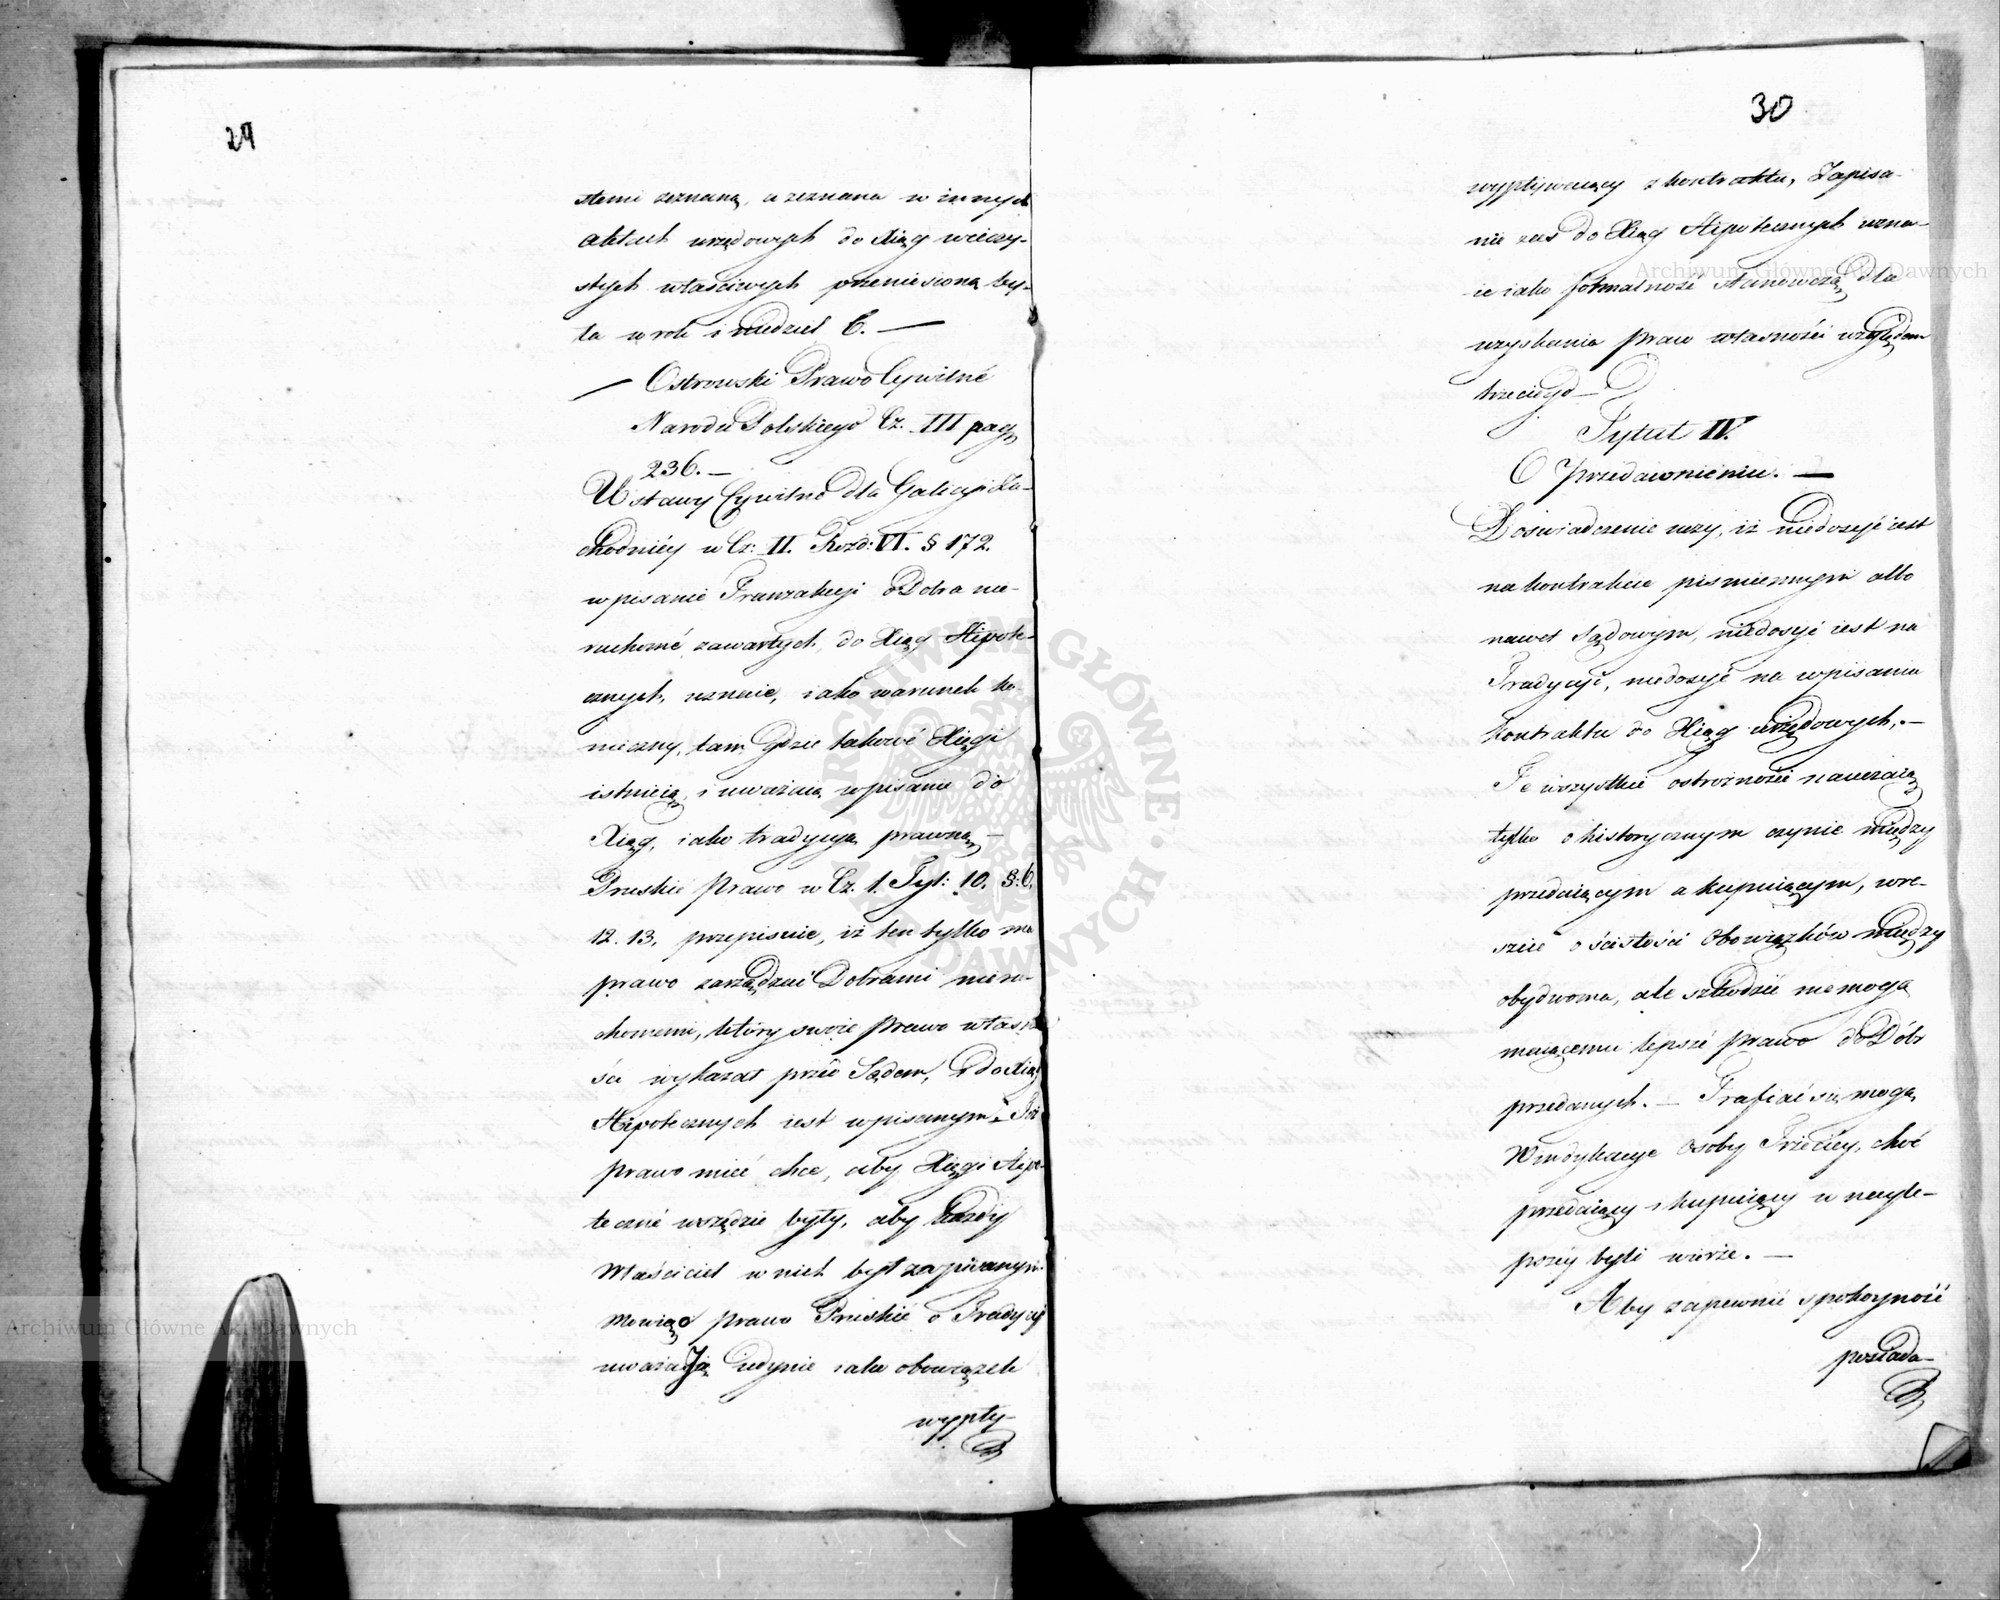 29
stemi zeznaną, a zeznana w innych
aktach urzędowych do Xiąg wieczy-
stych właściwych przeniesioną by-
ła w rok i niedziel 6. —
— Ostrowski Prawo Cywilné
Narodu Polskiego Cz. III pag.
236. —
Ustawy Cywilné dla Galicyi Za-
chodniéy w Cz: II. Rozd: VI. § 172.
wpisanie Tranzakcyi o Dobra nie-
ruchomé zawartych, do Xiąg Hipote-
cznych, uznaie, iako warunek ko-
nieczny, tam gdzie takowé Xięgi
istnieią, i uważaią wpisanie do
Xiąg, iako tradycyą prawną —
Pruskié Prawo w Cz. 1. Tyt: 10. §: 6.
12. 13. przepisuie, iż ten tylko ma
prawo zarządzać Dobrami nieru-
chomemi, który swoie prawo własno
ści wykazał przed Sądem, i do Xiąg
Hipotecznych iest wpisanym. Toż
prawo mieć chce, aby Xięgi Hipo-
teczné wszędzie były, aby każdy
Właściciel w nich był zapisanym.
Mówiąc prawo Pruskié o Tradycyi
uważa Ją iedynie iako obowiązek
wypły-
30
wypływaiący z kontraktu, Zapisa-
nie zaś do Xiąg Hipotecznych uzna-
ie iako formalność stanowczą dla
uzyskania praw własności względem
trzeciego —
Tytuł IV.
O Przedawnieniu. —
Doświadczenie uczy, iż niedosyć iest
na kontrakcie piśmiennym albo
nawet Sądowym, niedosyć iest na
Tradycyi, niedosyć na wpisaniu
kontraktu do Xiąg urzędowych, —
Te wszystkié ostrożności nauczaią
tylko o historycznym czynie między
przedaiącym a kupuiącym, wre-
szcie o ścisłości obowiązków między
obydwoma, ale szkodzić nie mogą
maiącemu lepszé prawo do Dóbr
przedanych. — Trafiać się mogą
Windykacye Osoby Trzeciéy, choć
przedaiący i kupuiący w nayle-
pszéy byli wierze. —
Aby zapewnić spokoyność
posiada-
Archiwum Główne Akt Dawnych
Archiwum Główne Akt Dawnych
ARCHIWUM GŁÓWNE AKT DAWNYCH